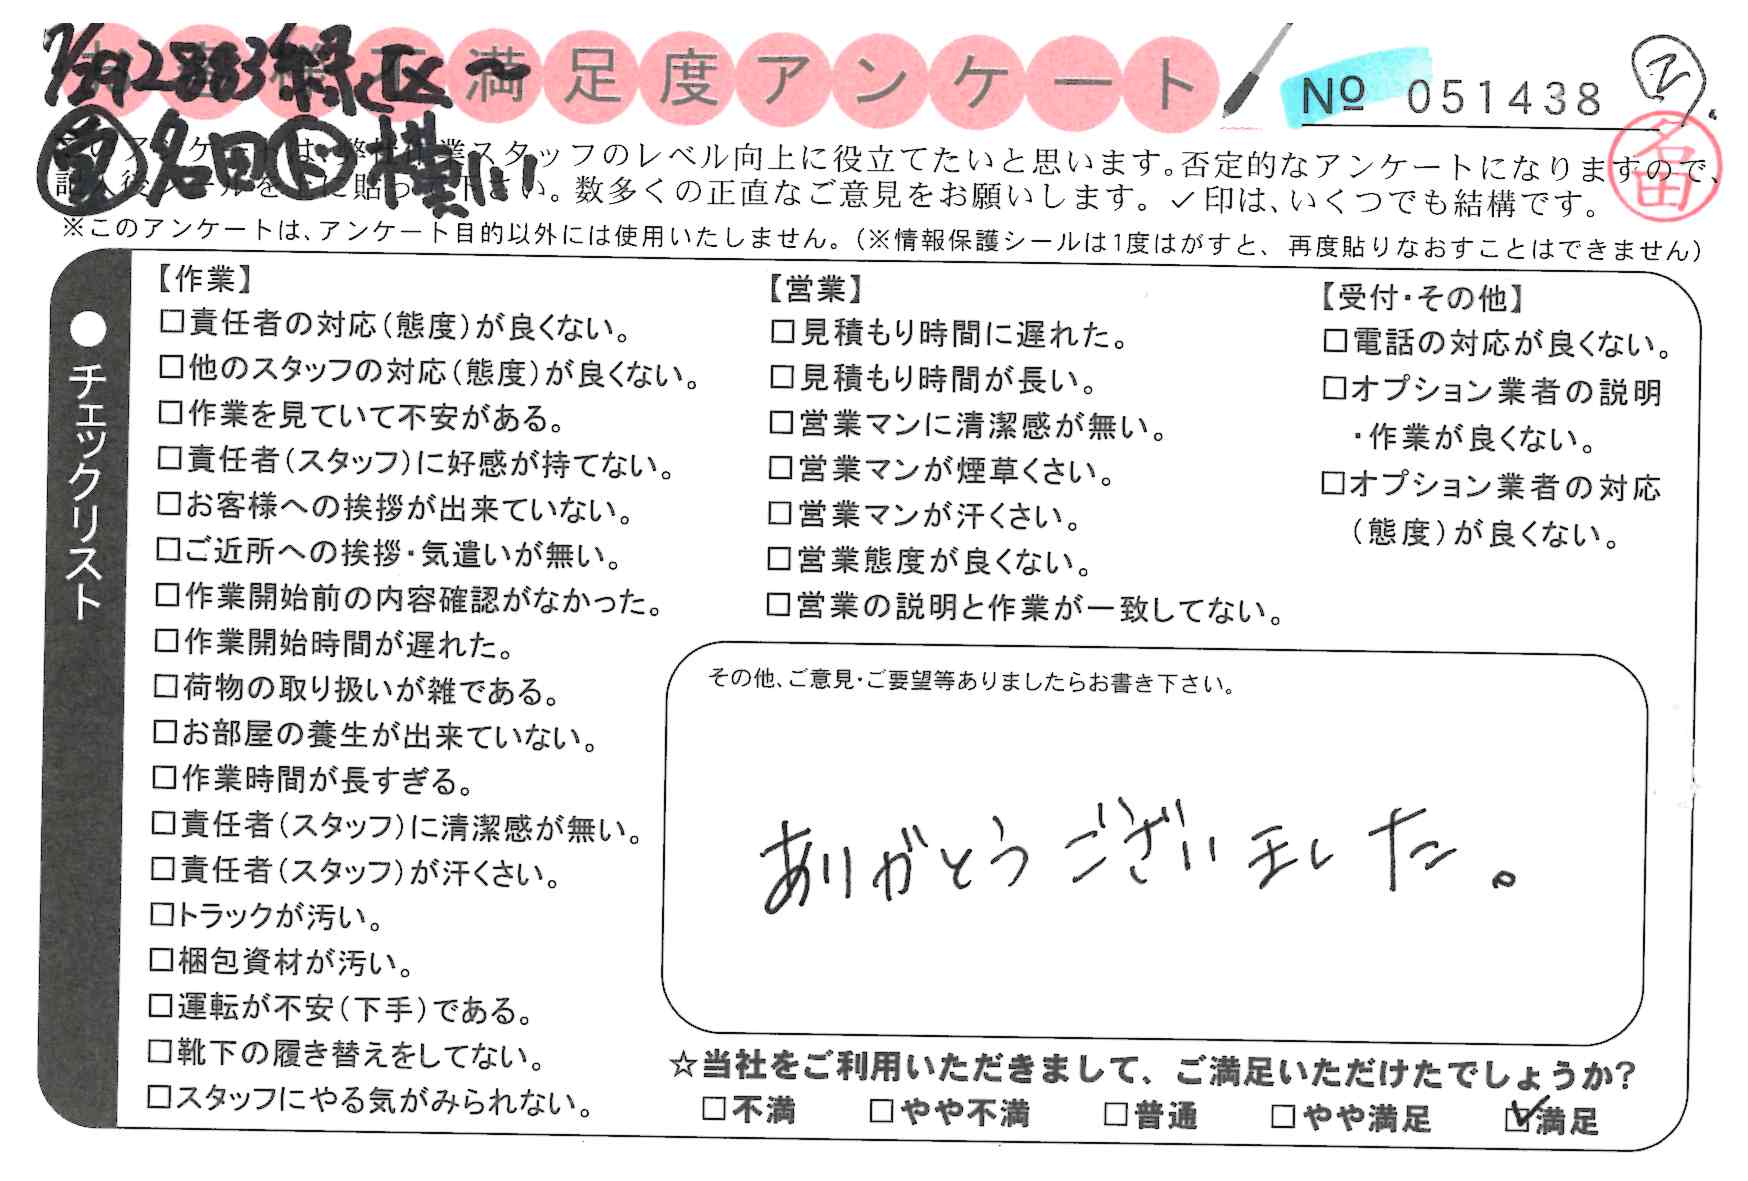 満足度アンケート
№ 051438
スタッフのレベル向上に役立てたいと思います。否定的なアンケートになりますので、
い。数多くの正直なご意見をお願いします。✓印は、いくつでも結構です。
名田
※このアンケートは、アンケート目的以外には使用いたしません。(※情報保護シールは1度はがすと、再度貼りなおすことはできません)
●チェックリスト
【作業】
□責任者の対応(態度)が良くない。
□他のスタッフの対応(態度)が良くない。
□作業を見ていて不安がある。
□責任者(スタッフ)に好感が持てない。
□お客様への挨拶が出来ていない。
□ご近所への挨拶・気遣いが無い。
□作業開始前の内容確認がなかった。
□作業開始時間が遅れた。
□荷物の取り扱いが雑である。
□お部屋の養生が出来ていない。
□作業時間が長すぎる。
□責任者(スタッフ)に清潔感が無い。
□責任者(スタッフ)が汗くさい。
□トラックが汚い。
□梱包資材が汚い。
□運転が不安(下手)である。
□靴下の履き替えをしてない。
□スタッフにやる気がみられない。
【営業】
□見積もり時間に遅れた。
□見積もり時間が長い。
□営業マンに清潔感が無い。
□営業マンが煙草くさい。
□営業マンが汗くさい。
□営業態度が良くない。
□営業の説明と作業が一致してない。
【受付・その他】
□電話の対応が良くない。
□オプション業者の説明
・作業が良くない。
□オプション業者の対応
(態度)が良くない。
その他、ご意見・ご要望等ありましたらお書き下さい。
ありがとうございました。
☆当社をご利用いただきまして、ご満足いただけたでしょうか?
□不満 □やや不満 □普通 □やや満足 ☑満足